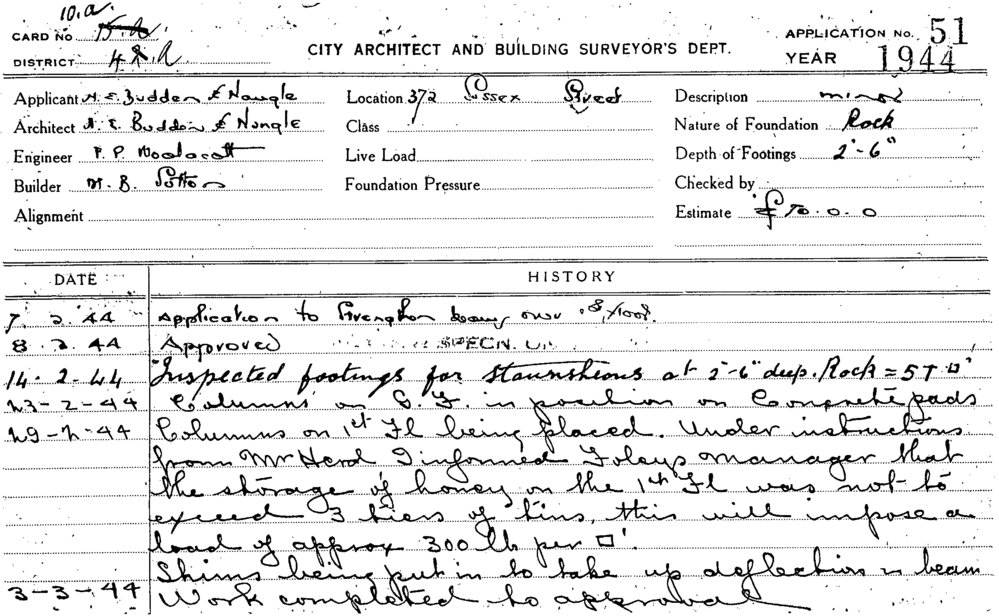 10.a.
CARD NO. 15.a
DISTRICT 4 A
CITY ARCHITECT AND BUILDING SURVEYOR'S DEPT.
APPLICATION No. 51
YEAR 1944
Applicant H. E. Budden & Nangle
Location 372 Sussex Street
Description minor
Architect H. E. Budden & Nangle
Class
Nature of Foundation Rock
Engineer P. P. Woolacott
Live Load
Depth of Footings 2'-6"
Builder M. B. Sutton
Foundation Pressure
Checked by
Alignment
Estimate £ 70.0.0
DATE
HISTORY
7. 2. 44 Application to strengthen beams over floor.
8. 2. 44 Approved SPECN.
14. 2. 44 Inspected footings for staunsheons at 2'-6" deep. Rock = 5T □'
23-2-44 Columns on G. F. in position on Concrete pads
29-2-44 Columns on 1st Fl being placed. Under instructions
from Mr Herd I informed Foleys manager that
the storage of honey on the 1st Fl was not to
exceed 3 tiers of tins, this will impose a
load of approx 300 lb per □'.
Shims being put in to take up deflection in beam
3-3-44 Work completed to approval